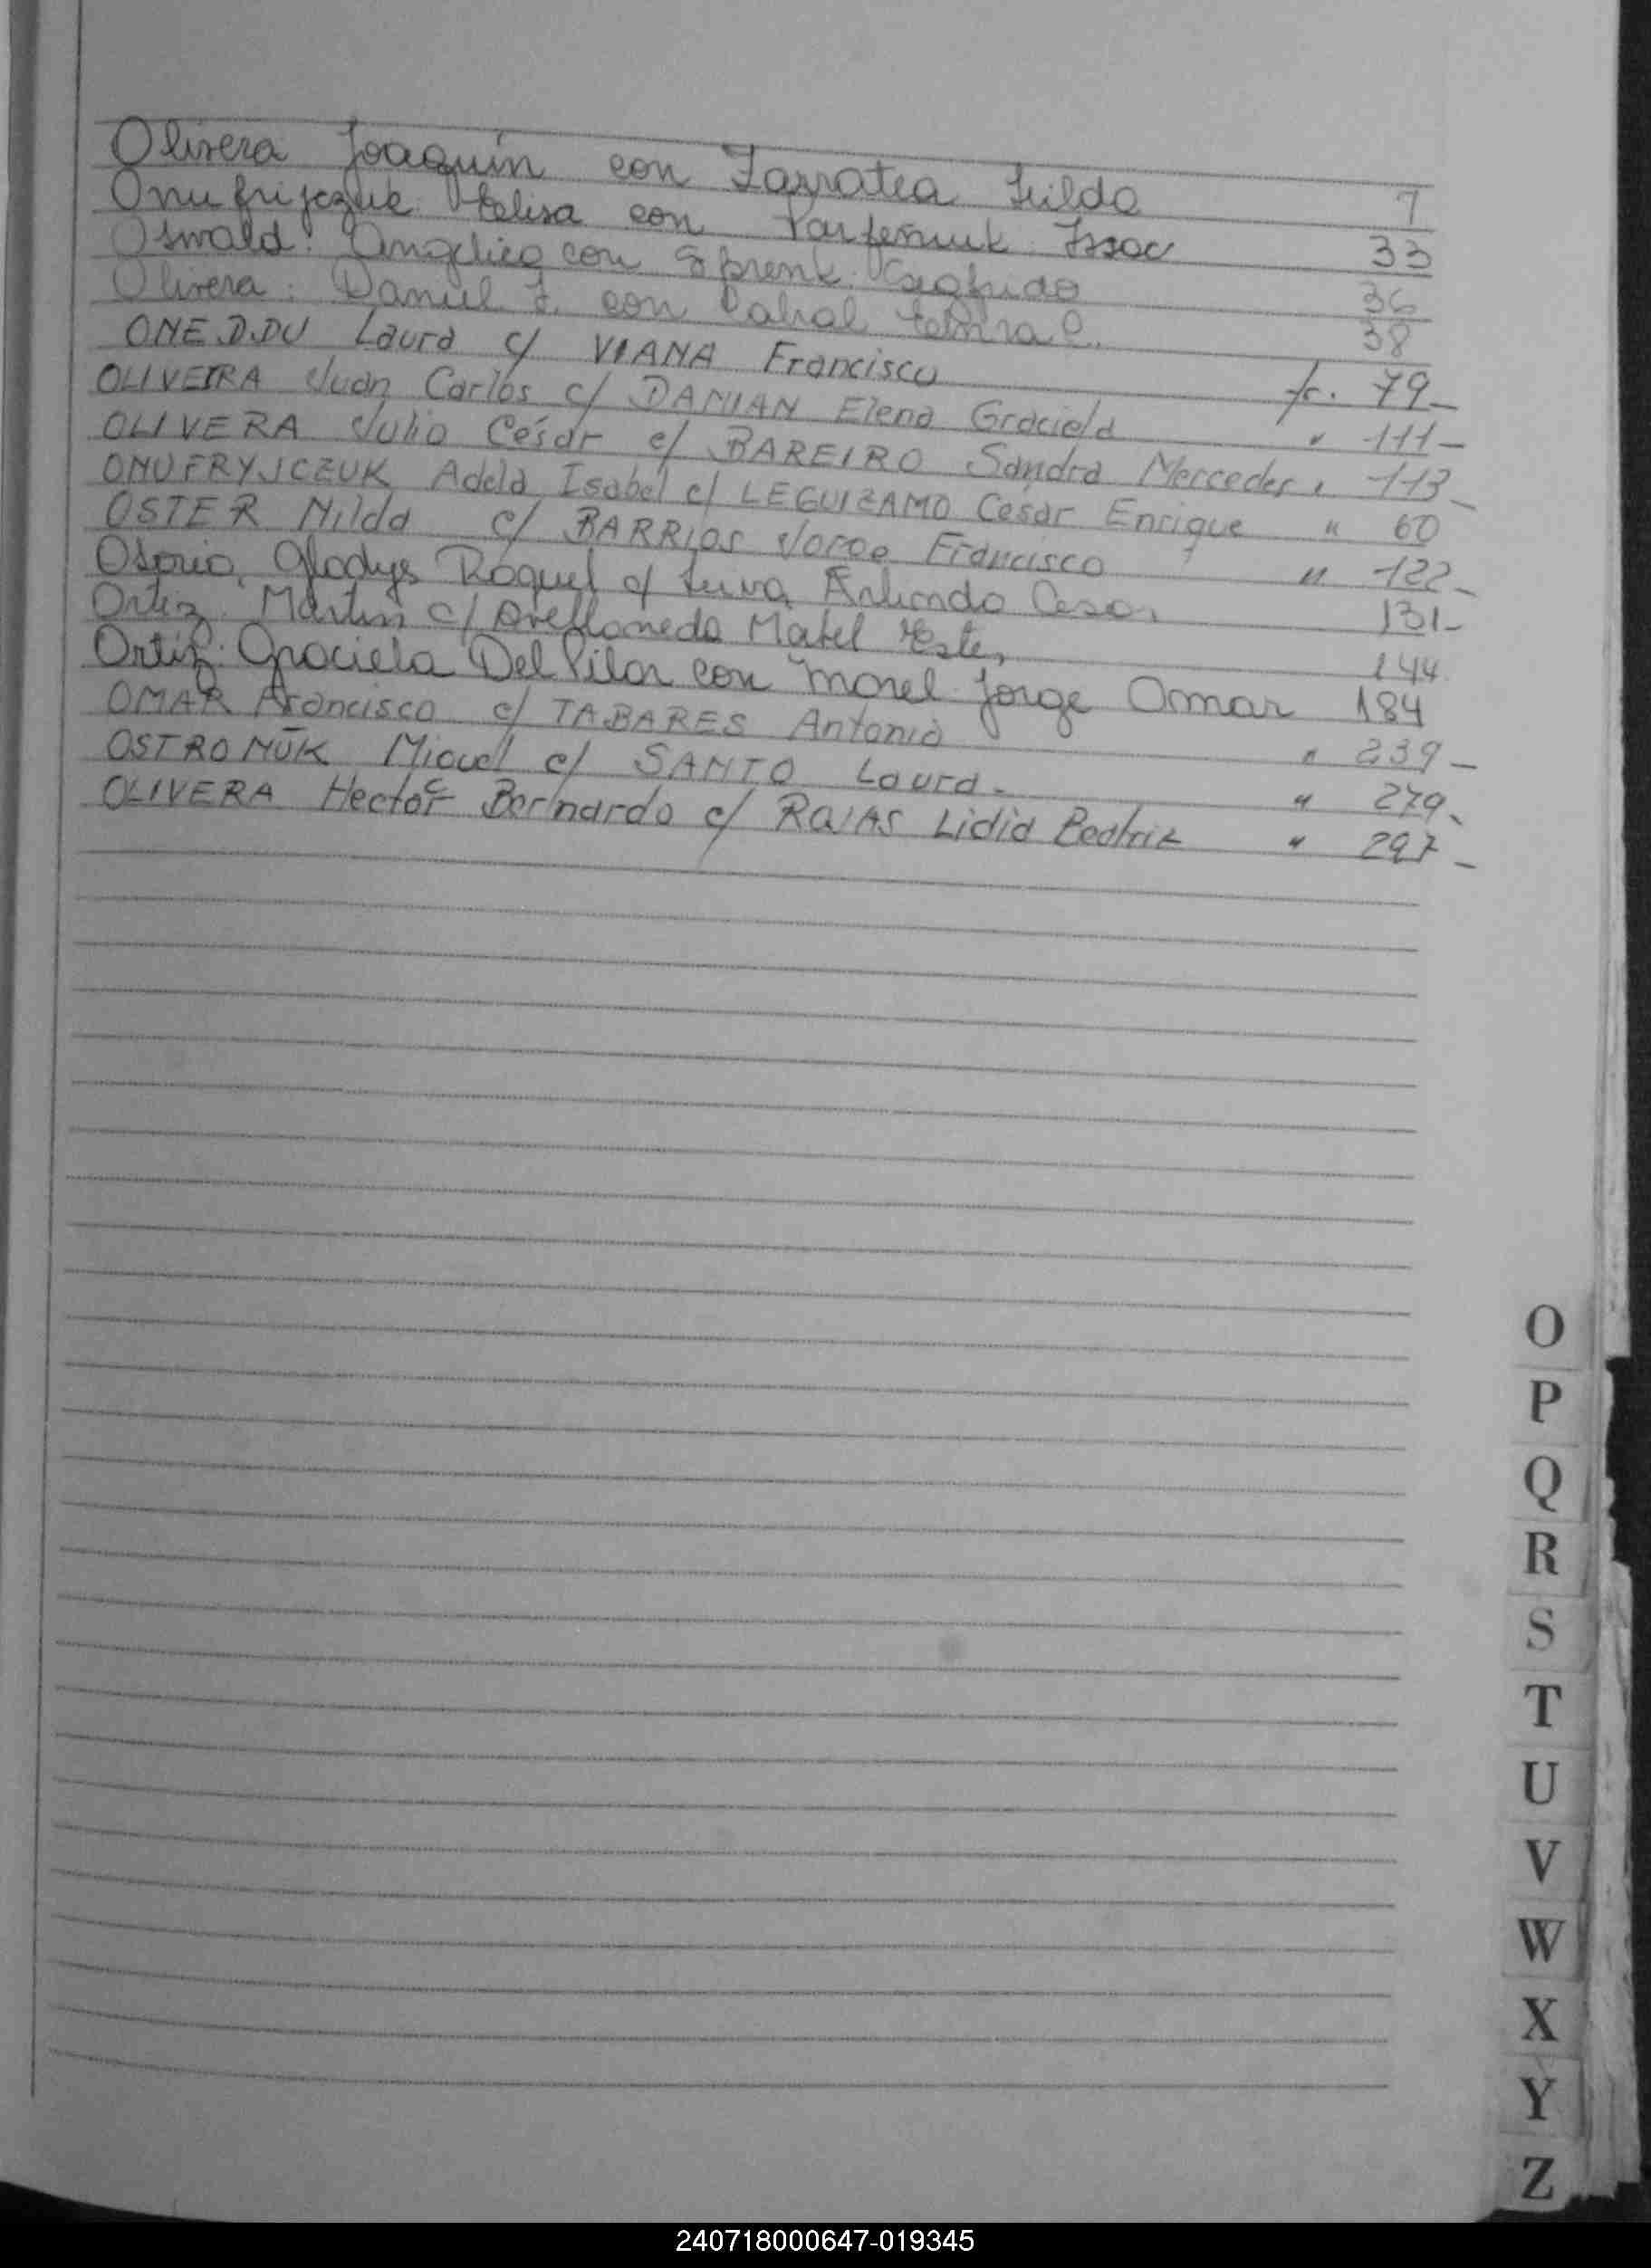 Olivera Joaquín con Larratea Hilda 7
Onufrijczuk. Felisa con Parfeniuk Isaac 33
Oswald. Angelica con Sprenk. 36
Olivera. Daniel con Cabral 38
ONEDDU Laura c/ VIANA Francisco fc. 79-
OLIVEIRA Juan Carlos c/ DAMIAN Elena Graciela " 111-
OLIVERA Julio César c/ BAREIRO Sandra Mercedes " 113-
ONUFRYJCZUK Adela Isabel c/ LEGUIZAMO César Enrique " 60
OSTER Nilda c/ BARRIOS Jorge Francisco " 122-
Osorio, Gladys Raquel c/ Leiva Cesar 131-
Ortiz. Martin c/ Avellaneda Mabel Ester 144
Ortiz. Graciela Del Pilar con Morel Jorge Omar 184
OMAR Francisco c/ TABARES Antonia " 239-
OSTROMUK Miguel c/ SANTO Laura- " 279-
OLIVERA Hector Bernardo c/ ROJAS Lidia Beatriz " 297-
O
P
Q
R
S
T
U
V
W
X
Y
Z
240718000647-019345